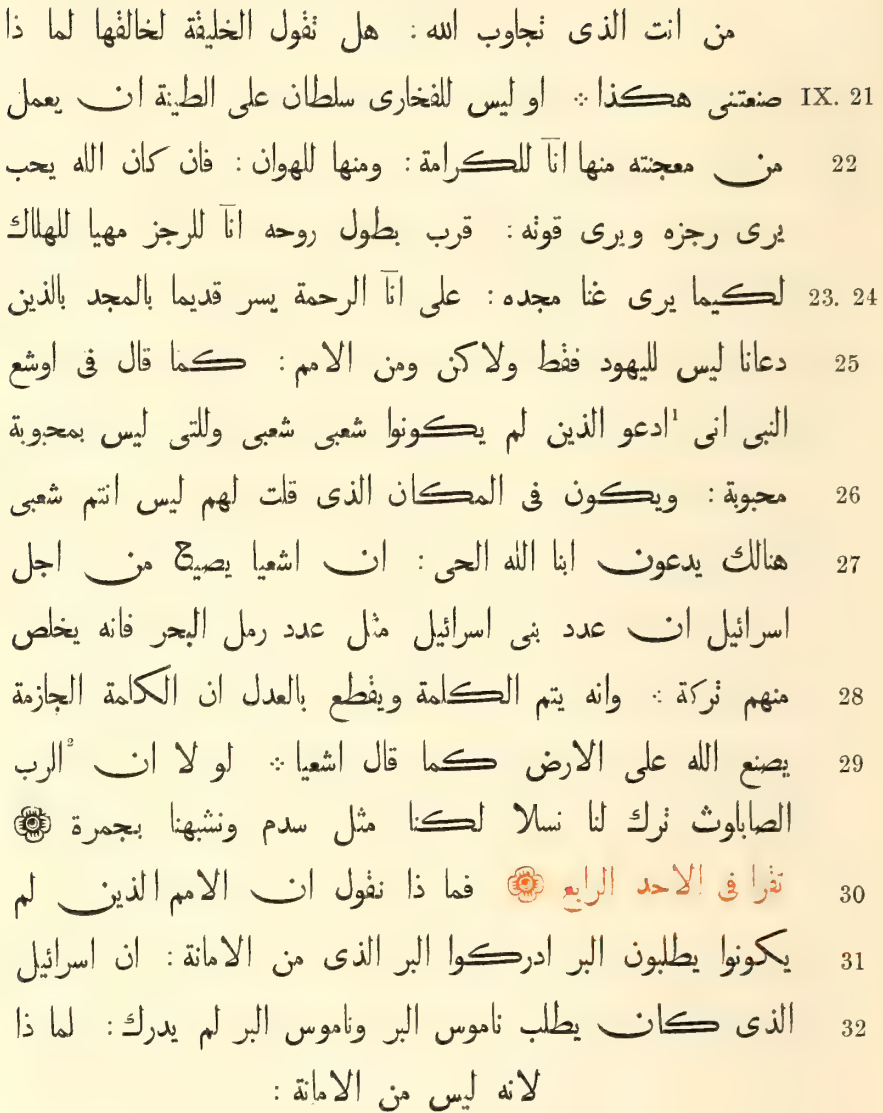 من انت الذى تجاوب الله : هل تقول الخليقة لخالقها لما ذا
IX. 21 صنعتنى هكذا ܀ او ليس للفخارى سلطان على الطينة ان يعمل
22 من معجنته منها اناۤ للكرامة : ومنها للهوان : فان كان الله يحب
يرى رجزه ويرى قوته : قرب بطول روحه اناۤ للرجز مهيا للهلاك
23. 24 لكيما يرى غنا مجده : على اناۤ الرحمة يسر قديما بالمجد بالذين
25 دعانا ليس لليهود فقط ولاكن ومن الامم : كما قال فى اوشع
النبى انى ¹ادعو الذين لم يكونوا شعبى شعبى وللتى ليس بمحبوبة
26 محبوبة : ويكون فى المكان الذى قلت لهم ليس انتم شعبى
27 هنالك يدعون ابنا الله الحى : ان اشعيا يصيح من اجل
اسرائيل ان عدد بنى اسرائيل مثل عدد رمل البحر فانه يخلص
28 منهم تركة ܀ وانه يتم الكلمة ويقطع بالعدل ان الكلمة الجازمة
29 يصنع الله على الارض كما قال اشعيا ܀ لو لا ان ²الرب
الصاباوث ترك لنا نسلا لكنا مثل سدم ونشبهنا بجمرة
30 تقرا فى الاحد الرابع فما ذا نقول ان الامم الذين لم
31 يكونوا يطلبون البر ادركوا البر الذى من الامانة : ان اسرائيل
32 الذى كان يطلب ناموس البر وناموس البر لم يدرك : لما ذا
لانه ليس من الامانة :